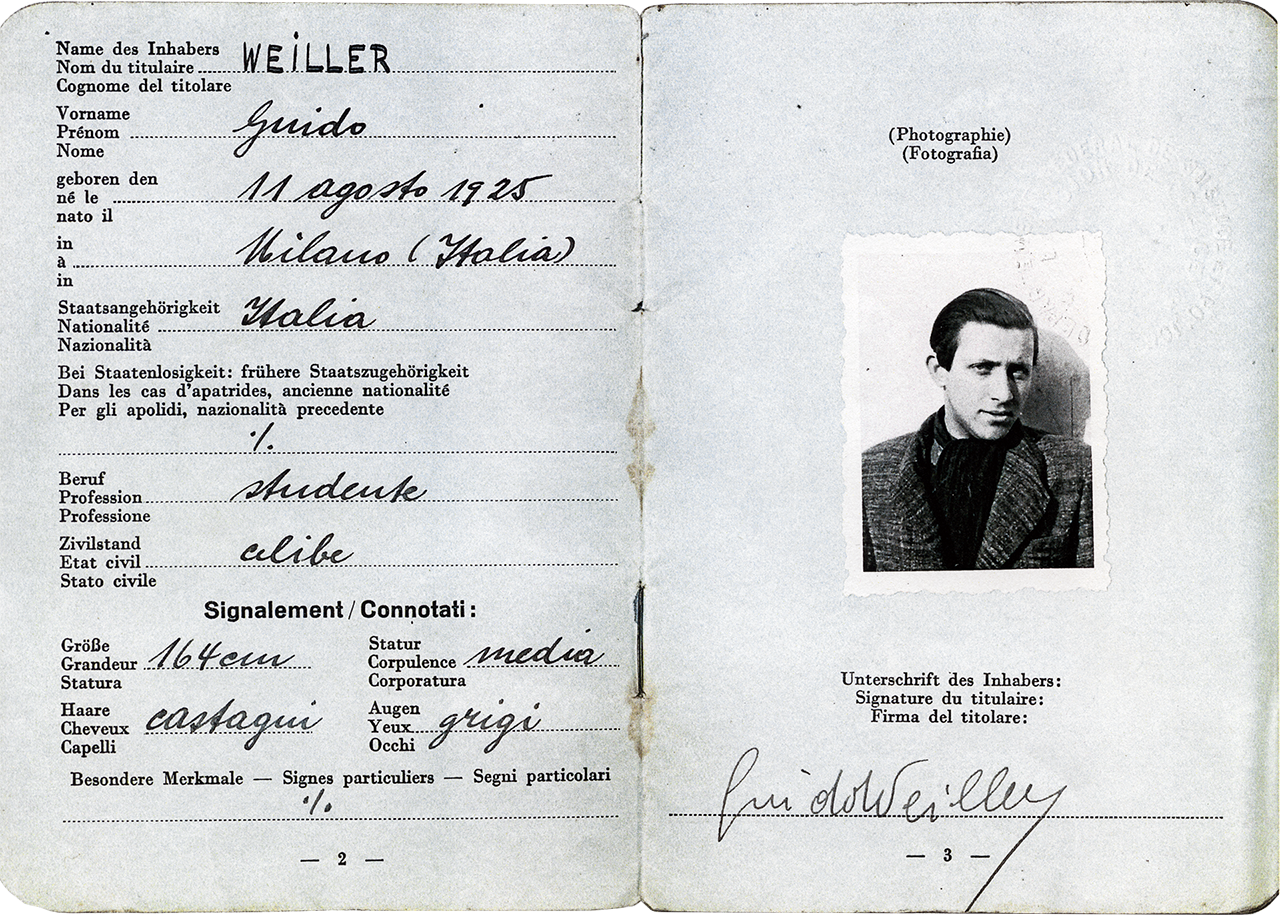 Name des Inhabers
Nom du titulaire WEILLER
Cognome del titolare
Vorname
Prénom Guido
Nome
geboren den
né le 11 agosto 1925
nato il
in
à Milano (Italia)
in
Staatsangehörigkeit
Nationalité Italia
Nazionalità
Bei Staatenlosigkeit: frühere Staatszugehörigkeit
Dans les cas d'apatrides, ancienne nationalité
Per gli apolidi, nazionalità precedente
·/.
Beruf
Profession studente
Professione
Zivilstand
Etat civil celibe
Stato civile
Signalement / Connotati:
Größe
Grandeur 164 cm
Statura
Statur
Corpulence media
Corporatura
Haare
Cheveux castagni
Capelli
Augen
Yeux grigi
Occhi
Besondere Merkmale — Signes particuliers — Segni particolari
·/.
— 2 —
(Photographie)
(Fotografia)
Unterschrift des Inhabers:
Signature du titulaire:
Firma del titolare:
Guido Weiller
— 3 —